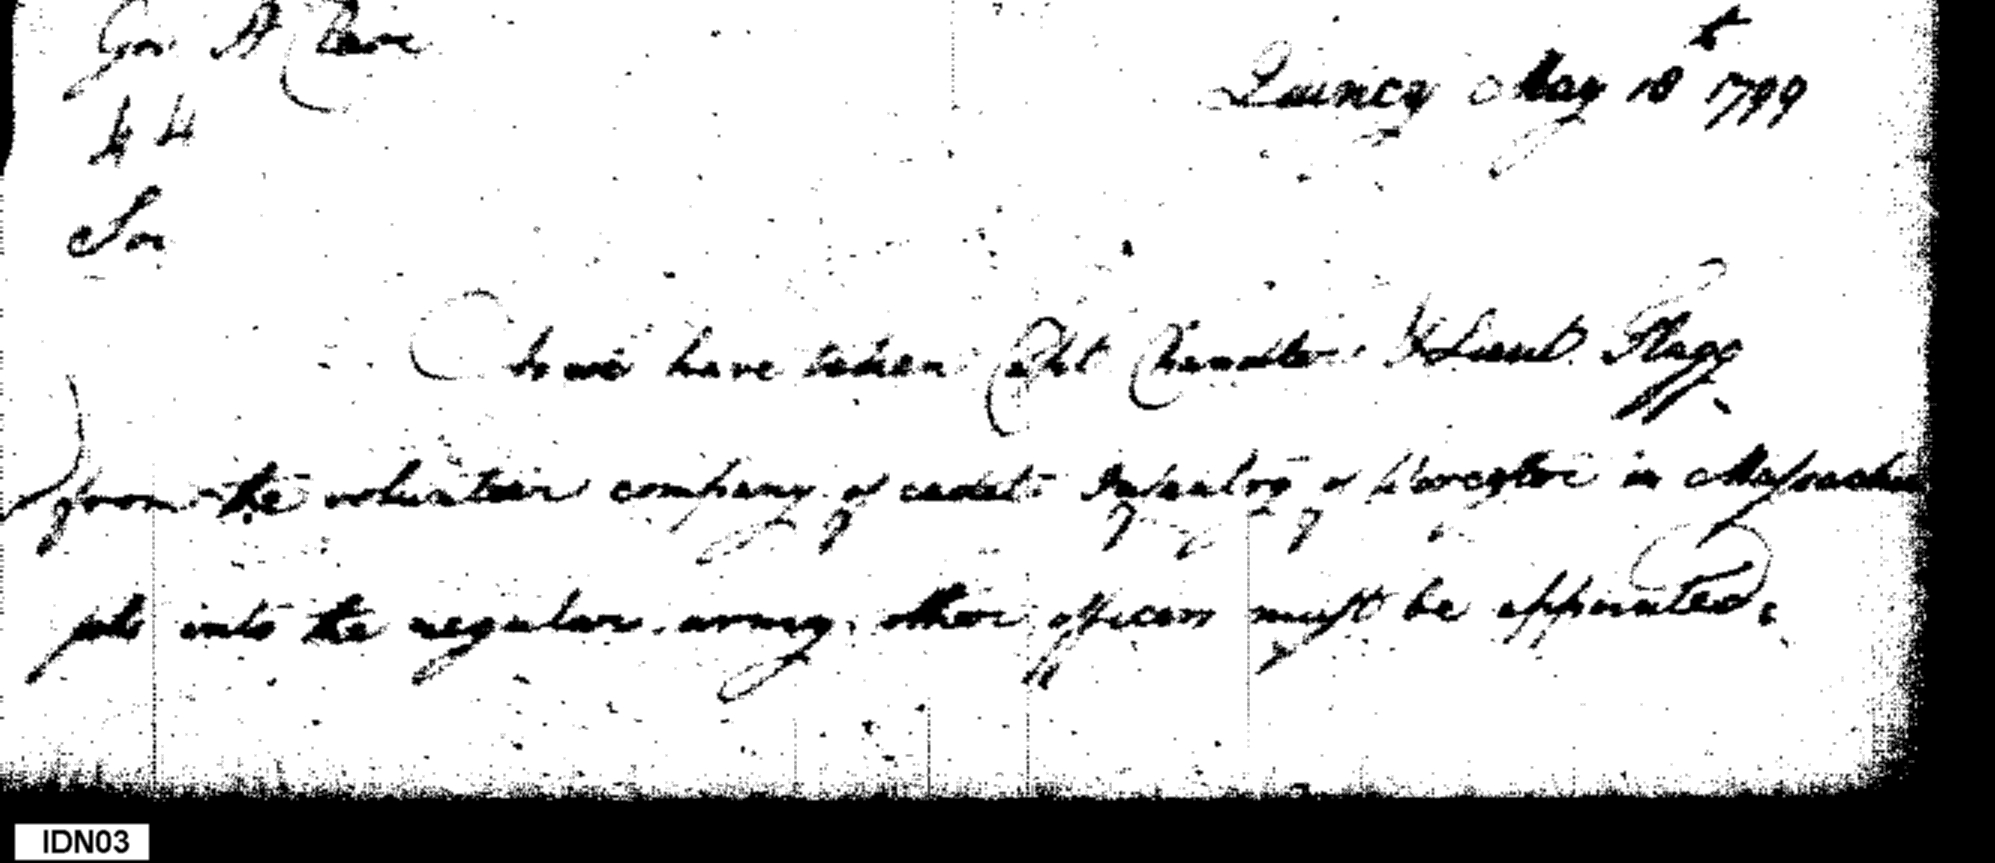 Quincy May 18th 1799
Sir
As we have taken Capt Chandler & Lieut. Flagg
from the volunteer company of cadet Infantry of Worcester in Massachu
into the regular army, other officers must be appointed,
IDN03